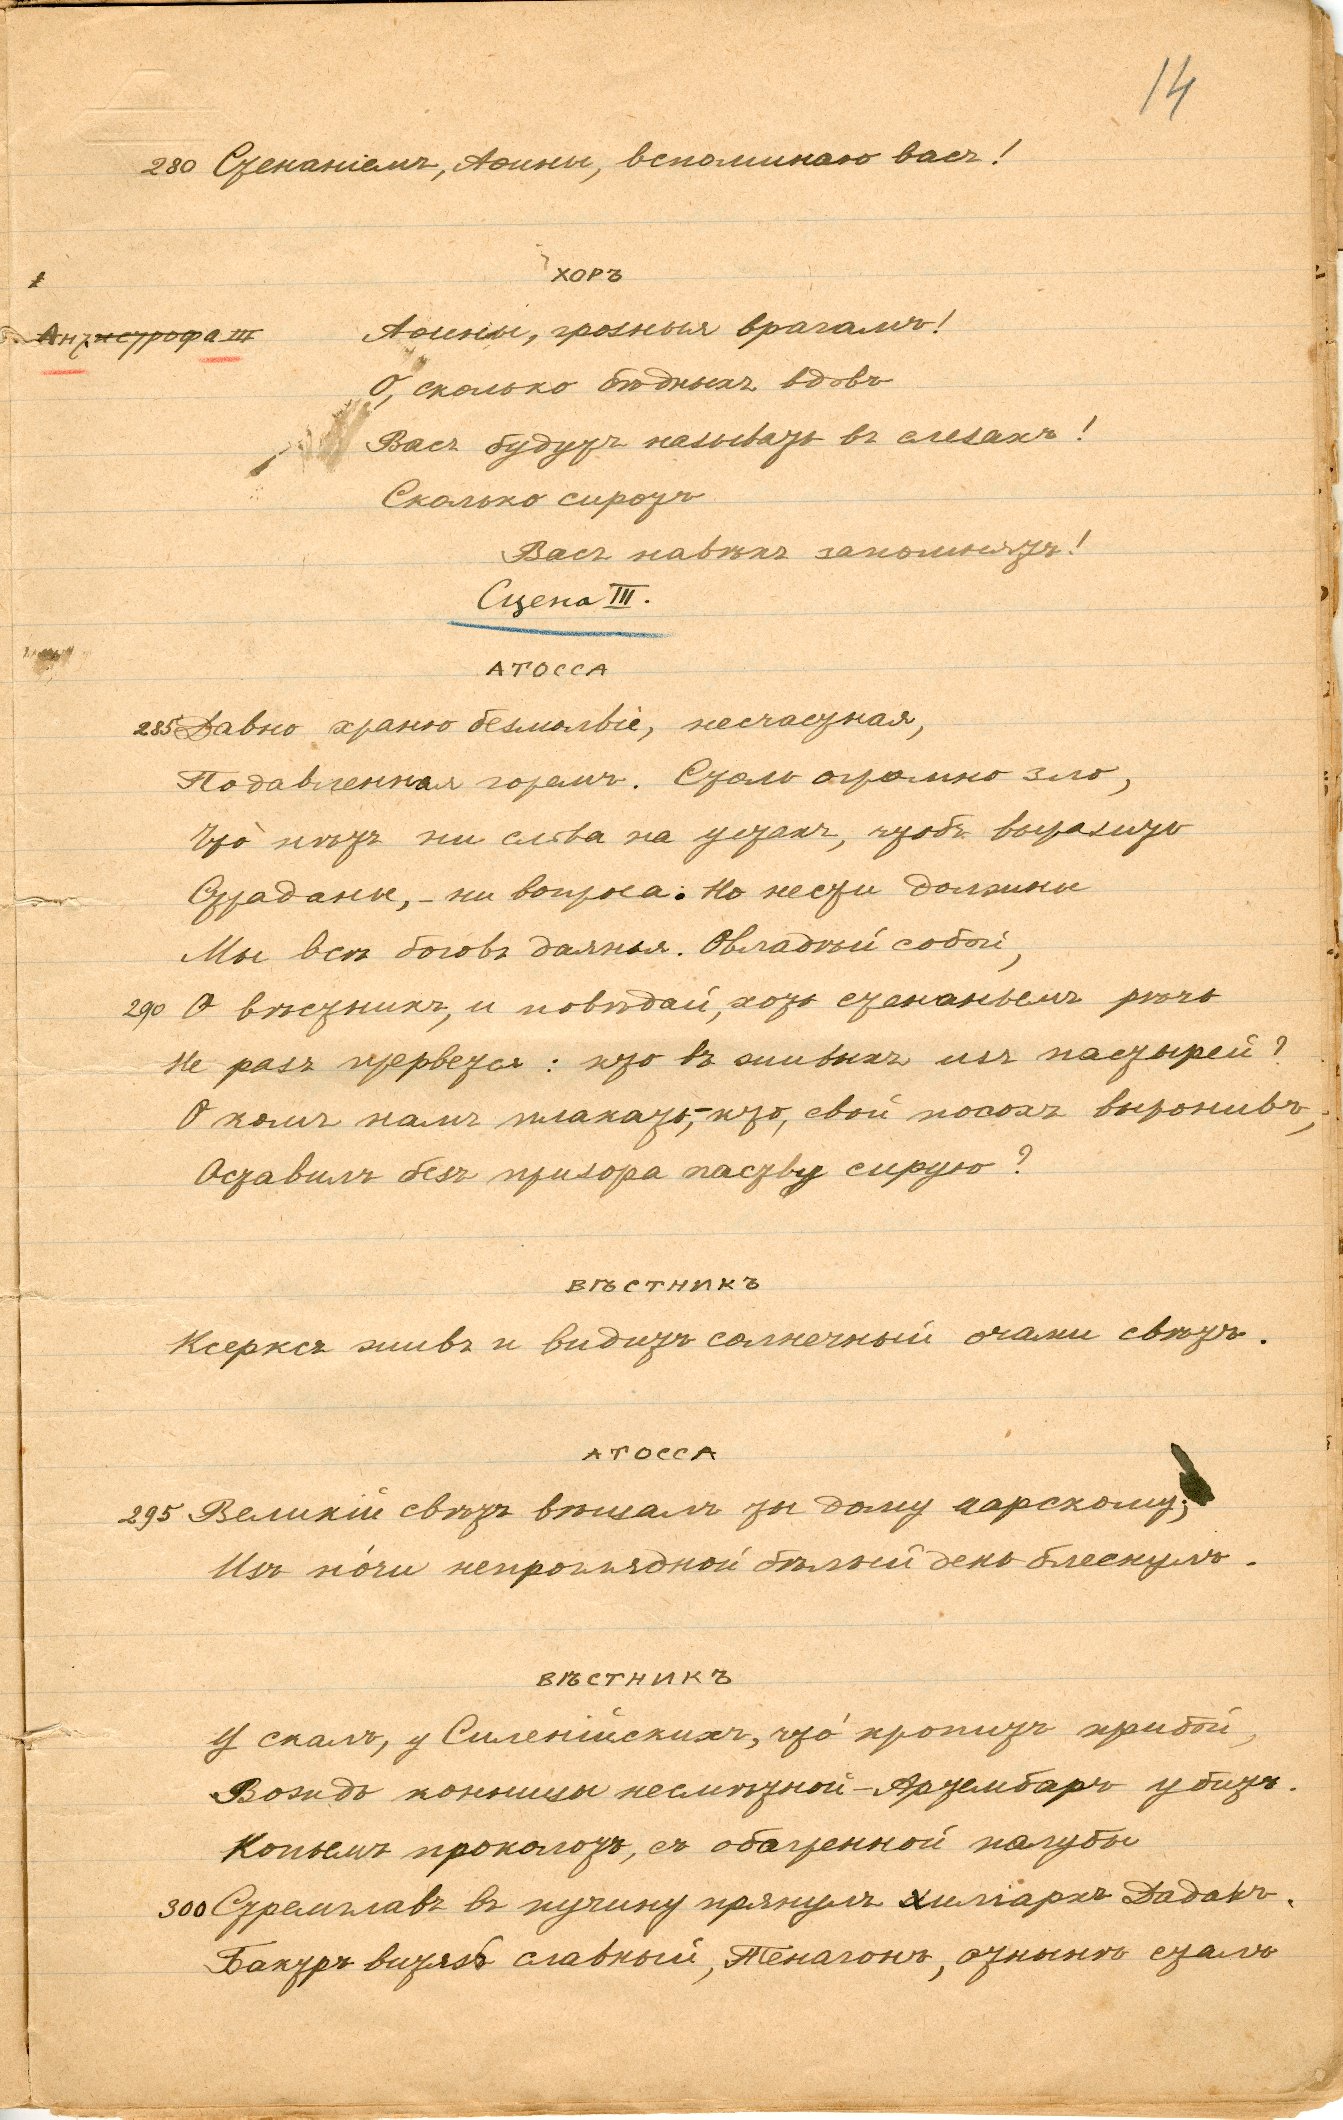 14
280 Стенаніемъ, Аѳины, вспоминаю васъ!
ХОРЪ
Антистрофа III
Аѳины, грозныя врагамъ!
О, сколько бѣдныхъ вдовъ
Васъ будутъ называть въ слезахъ!
Сколько сиротъ
Васъ навѣкъ запомнятъ!
Сцена III.
АТОССА
285 Давно храню безмолвіе, несчастная,
Подавленная горемъ. Столь огромно зло,
Что́ нѣтъ ни слова на устахъ, чтобъ выразить
Страданье, – ни вопроса. Но нести должны
Мы всѣ боговъ даянья. Овладѣй собой,
290 О вѣстникъ, и повѣдай, хоть стенаньемъ рѣчь
Не разъ прервется: кто въ живыхъ изъ пастырей?
О комъ намъ плакать, – кто, свой посохъ выронивъ,
Оставилъ безъ призора паству сирую?
ВѢСТНИКЪ
Ксерксъ живъ и видитъ солнечный очами свѣтъ.
АТОССА
295 Великій свѣтъ вѣщалъ ты дому царскому;
Изъ но́чи непроглядной бѣлый день блеснулъ.
ВѢСТНИКЪ
У скалъ, у Силенійскихъ, что́ кропитъ прибой,
Вождь конницы несмѣтной – Артембаръ убитъ.
Копьемъ проколотъ, съ обагренной палубы
300 Стремглавъ въ пучину прянулъ хиліархъ Дадакъ.
Бактръ витязь славный, Тенагонъ, отнынѣ сталъ